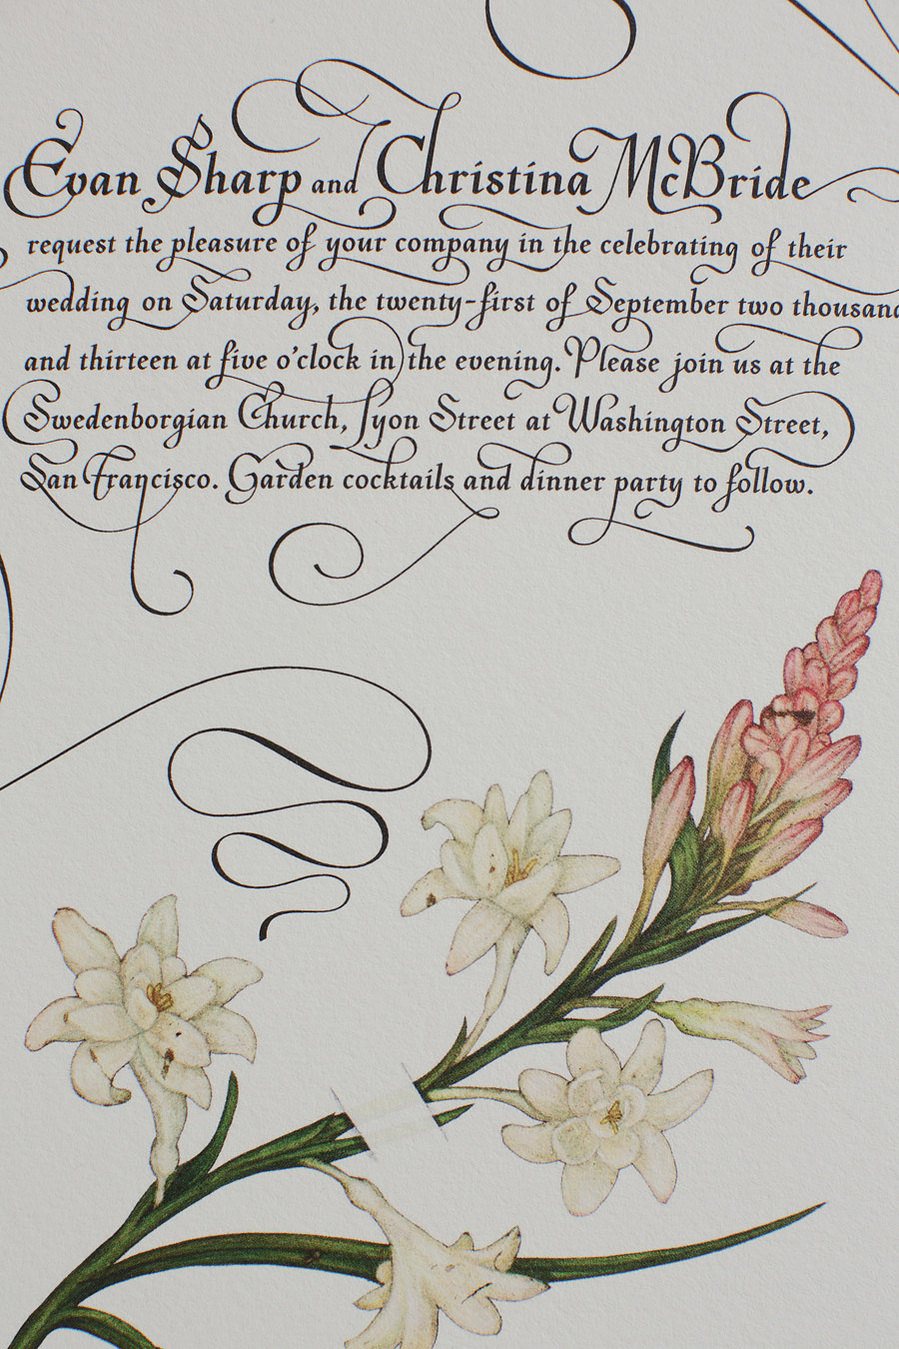 Evan Sharp and Christina McBride
request the pleasure of your company in the celebrating of their
wedding on Saturday, the twenty-first of September two thousand
and thirteen at five o'clock in the evening. Please join us at the
Swedenborgian Church, Lyon Street at Washington Street,
San Francisco. Garden cocktails and dinner party to follow.